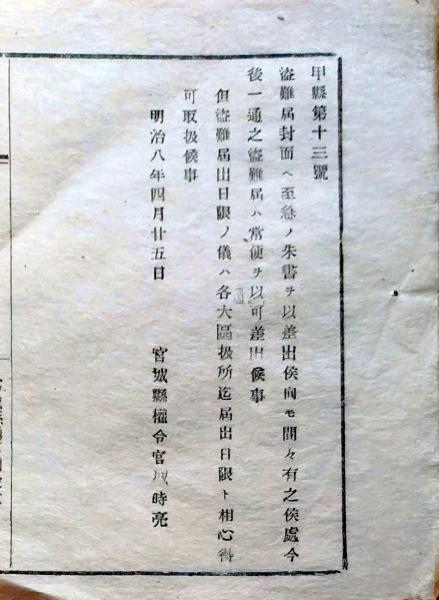 甲縣第十三號
盗難屆封面ヘ至急ノ朱書ヲ以差出侯向モ間々有之侯處今
後一通之盗難屆ハ常便ヲ以可差出候事
但盗難屆出日限ノ儀ハ各大區扱所迄屆出日限ト相心得
可取扱候事
明治八年四月廿五日
宮城縣權令宮城時亮